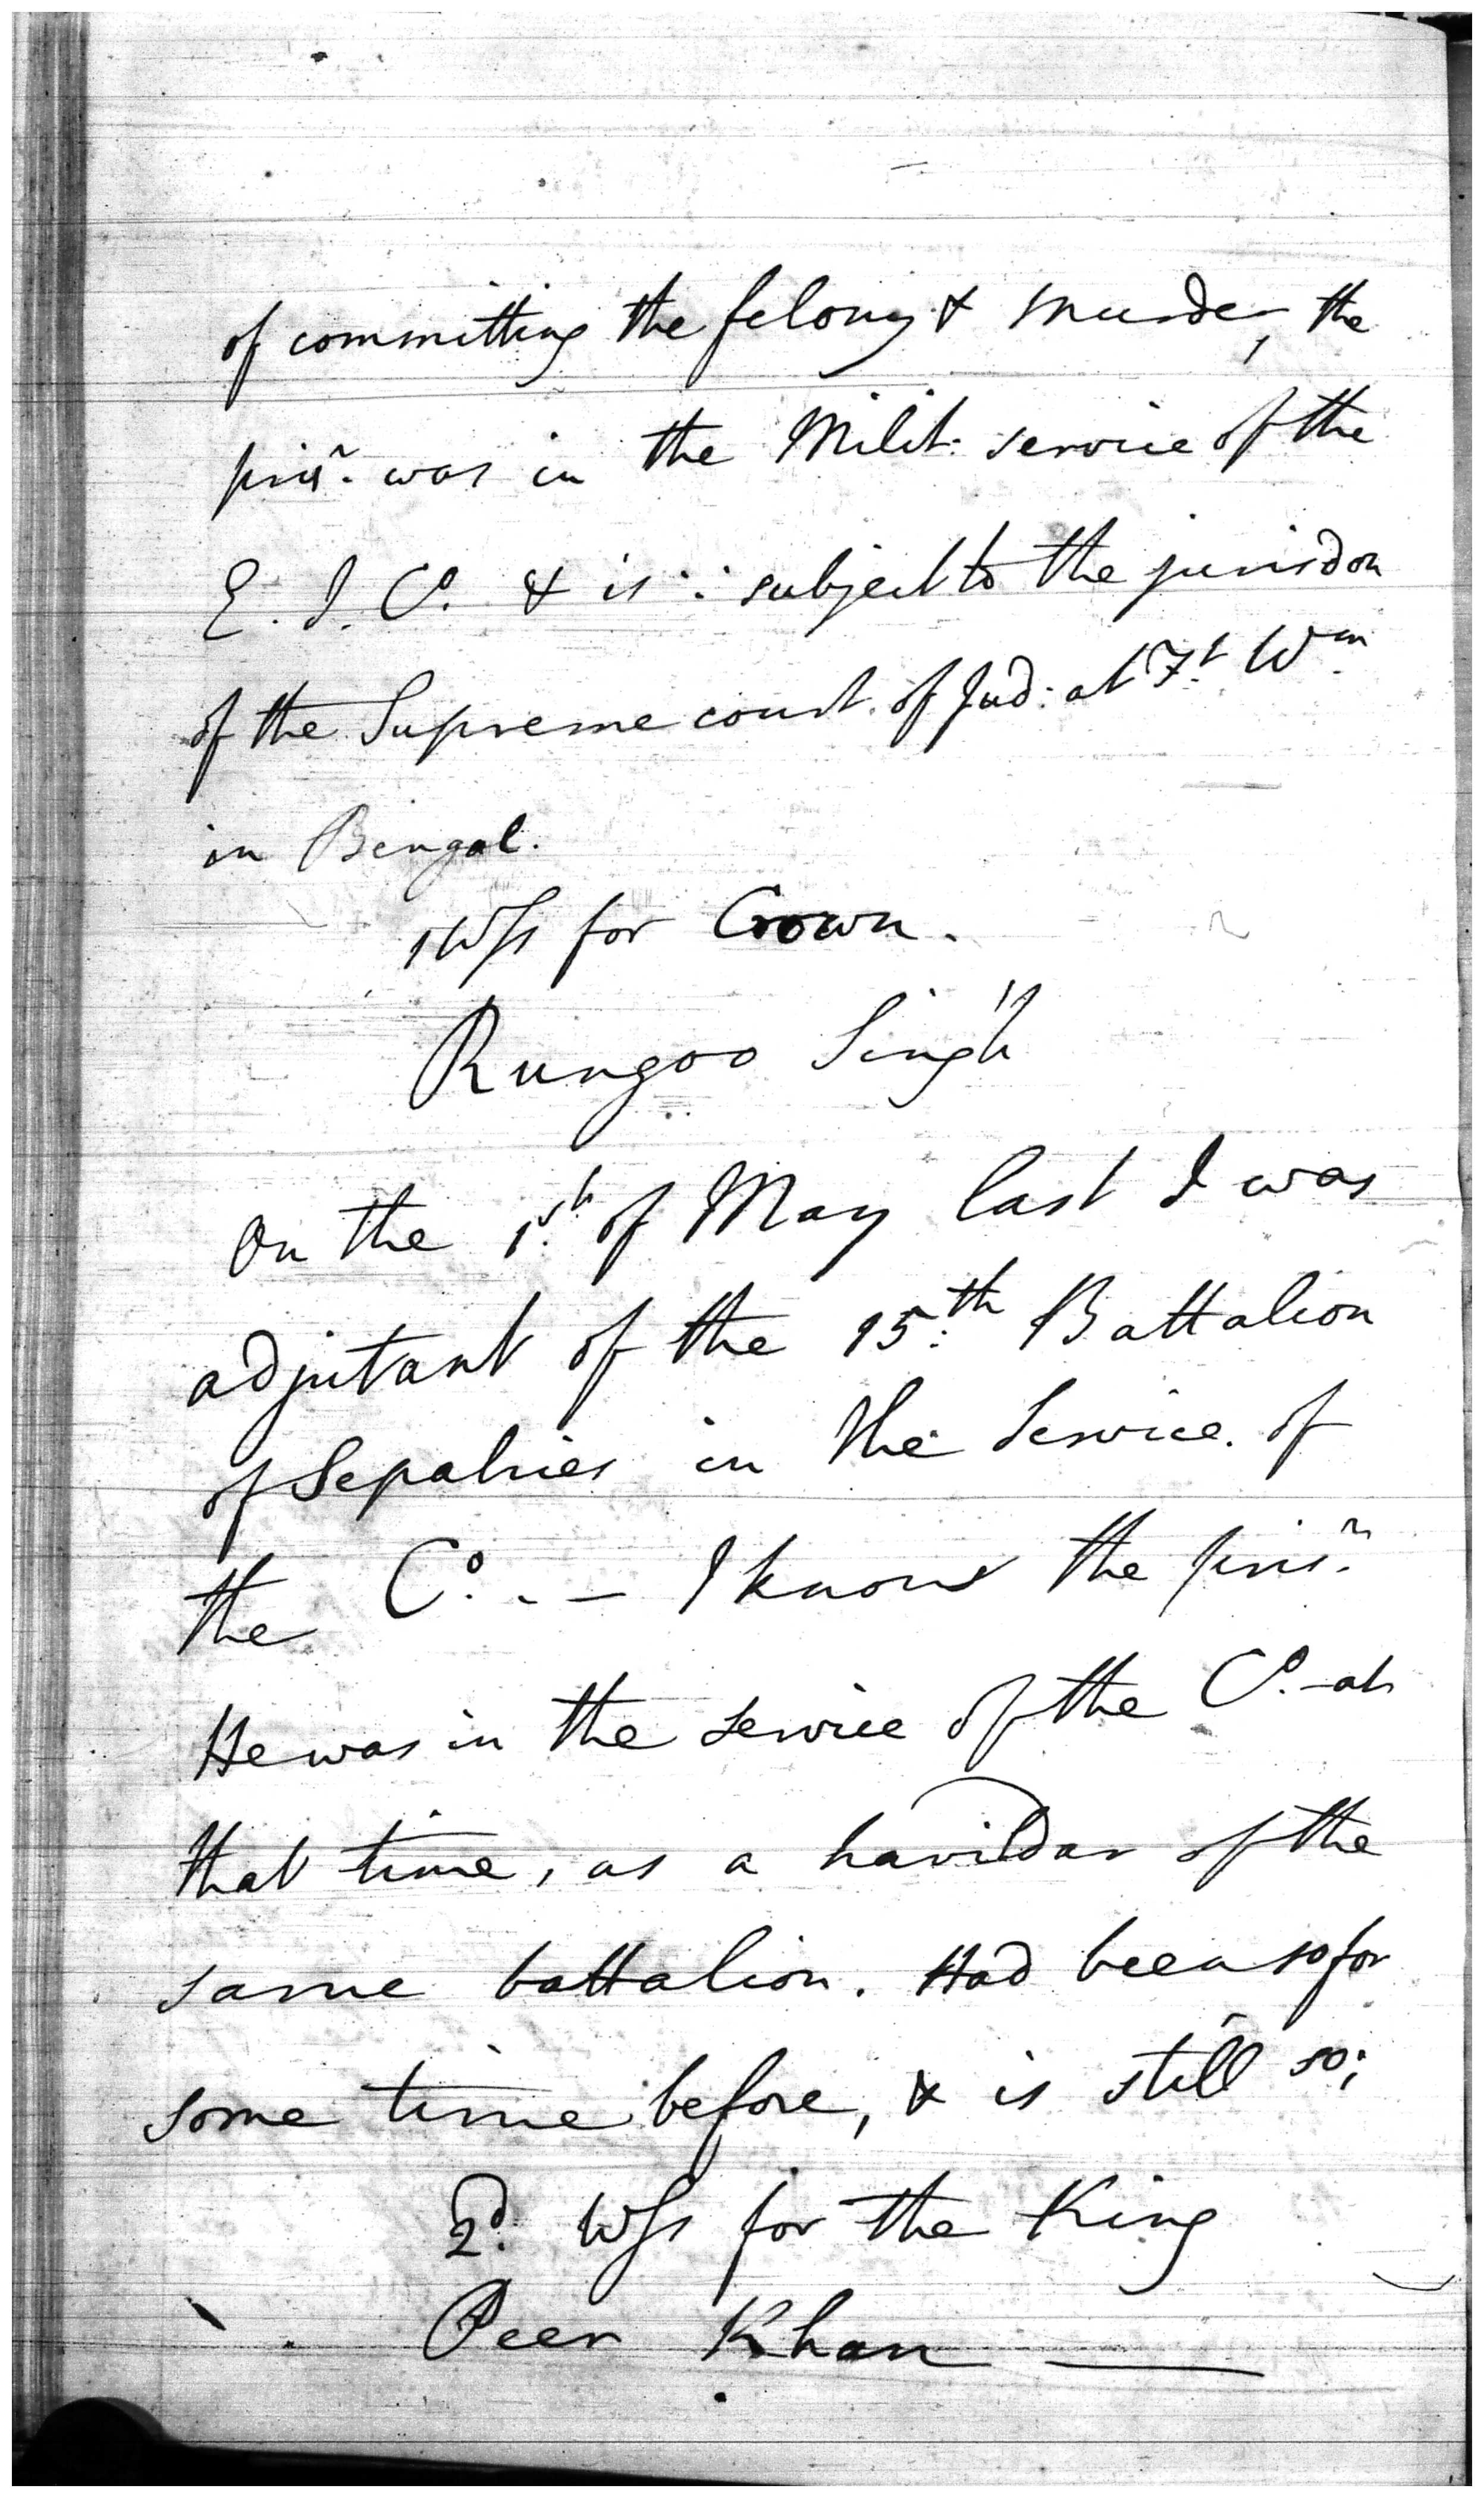 of committing the felony & murder, the
prisr. was in the Milit: service of the
E. I. Co. & is ∴ subject to the jurisdon
of the Supreme court of Jud: at Ft. Wm.
in Bengal.
1 Wss for Crown.
Rungoo Singh
On the 1st. of May last I was
adjutant of the 15.th Battalion
of Sepahies in the Service of
the Co. . — I know the prisr.
He was in the service of the Co. at
that time, as a havildar of the
same battalion. Had been so for
some time before, & is still so;
2d. Wss for the King
Peer Khan —